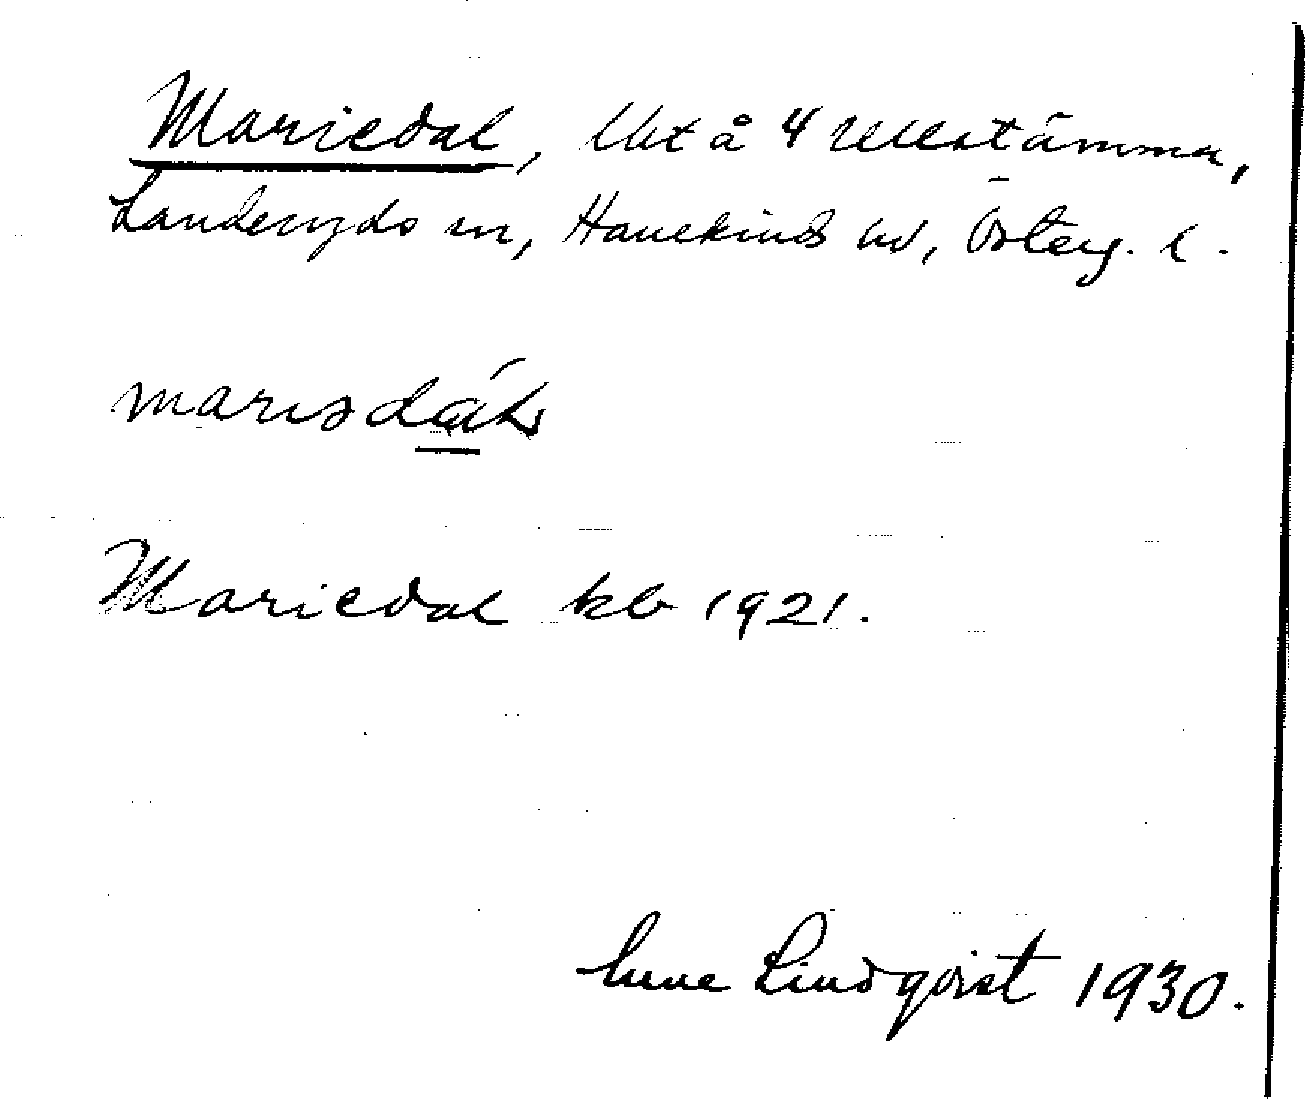 Mariedal, lht å 4 Ullstämma,
Landeryds sn, Hanekinds hd, Österg. l.
marisdal
Mariedal kb 1921.
Sune Lindqvist 1930.